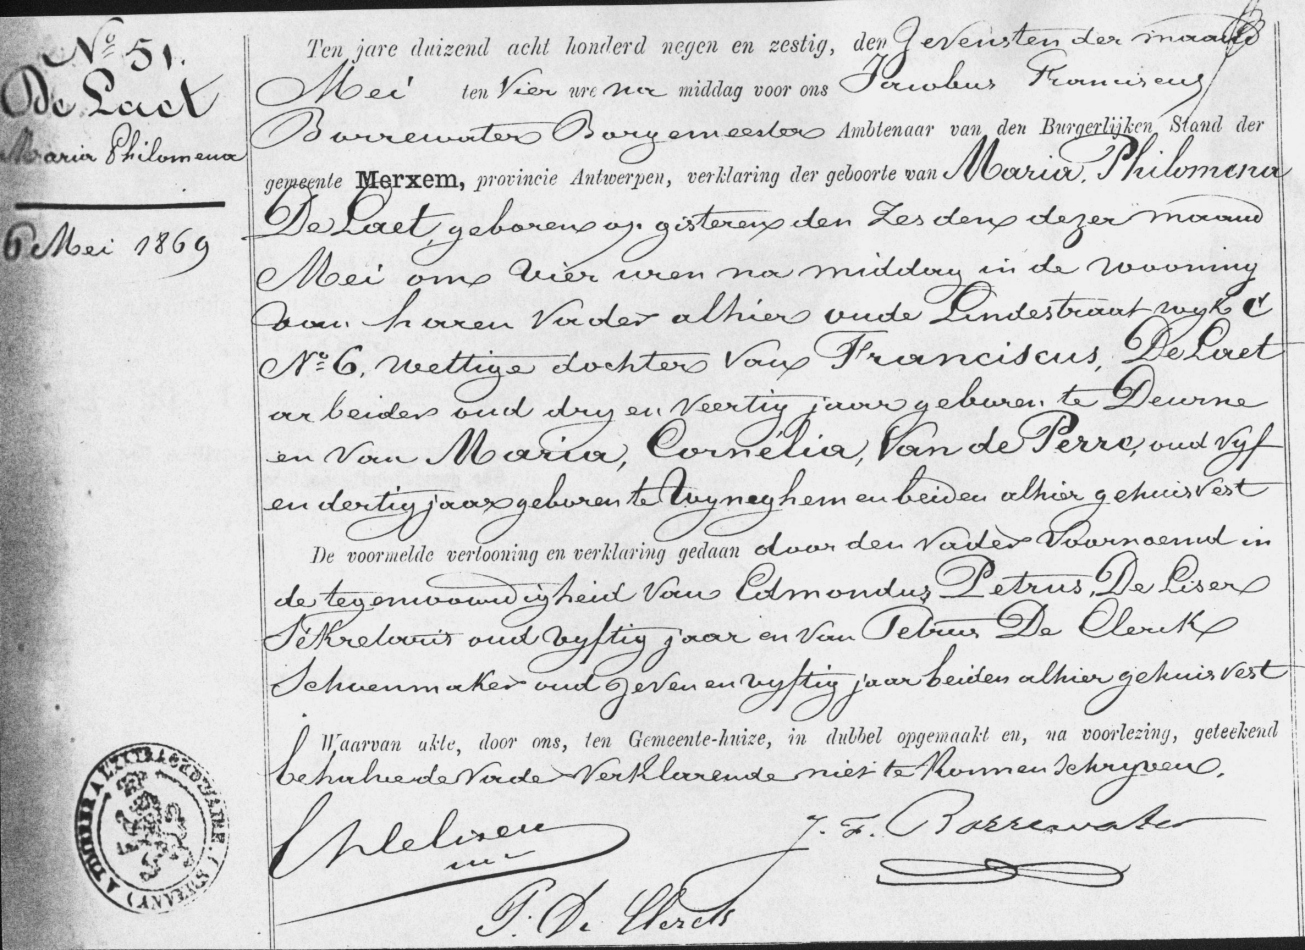 N° 51.
De Laet
Maria Philomena
6 Mei 1869
Ten jare duizend acht honderd negen en zestig, den Zevensten der maand
Mei ten Vier ure na middag voor ons Jacobus Franciscus
Borrewater Borgemeester Ambtenaar van den Burgerlijken Stand der
gemeente Merxem, provincie Antwerpen, verklaring der geboorte van Maria, Philomena
De Laet, geboren op gisteren den Zesden dezer maand
Mei om Vier uren na middag in de wooning
van haren Vader alhier oude Lindestraat wyk C
N° 6, wettige dochter van Franciscus, De Laet
arbeider oud dry en veertig jaar geboren te Deurne
en van Maria, Cornélia, Van de Perre, oud vyf
en dertig jaar geboren te Wyneghem en beiden alhier gehuisvest
De voormelde vertooning en verklaring gedaan door den Vader Voornoemd in
de tegenwoordigheid van Edmondus, Petrus, De Liser
Sékretaris oud vyftig jaar en van Petrus De Clerck
Schoenmaker oud zeven en vyftig jaar beiden alhier gehuisvest
Waarvan akte, door ons, ten Gemeente-huize, in dubbel opgemaakt en, na voorlezing, geteekend
behalve de Vader Verklarende niet te konnen schryven.
J. F. Borrewater
P. De Clerck